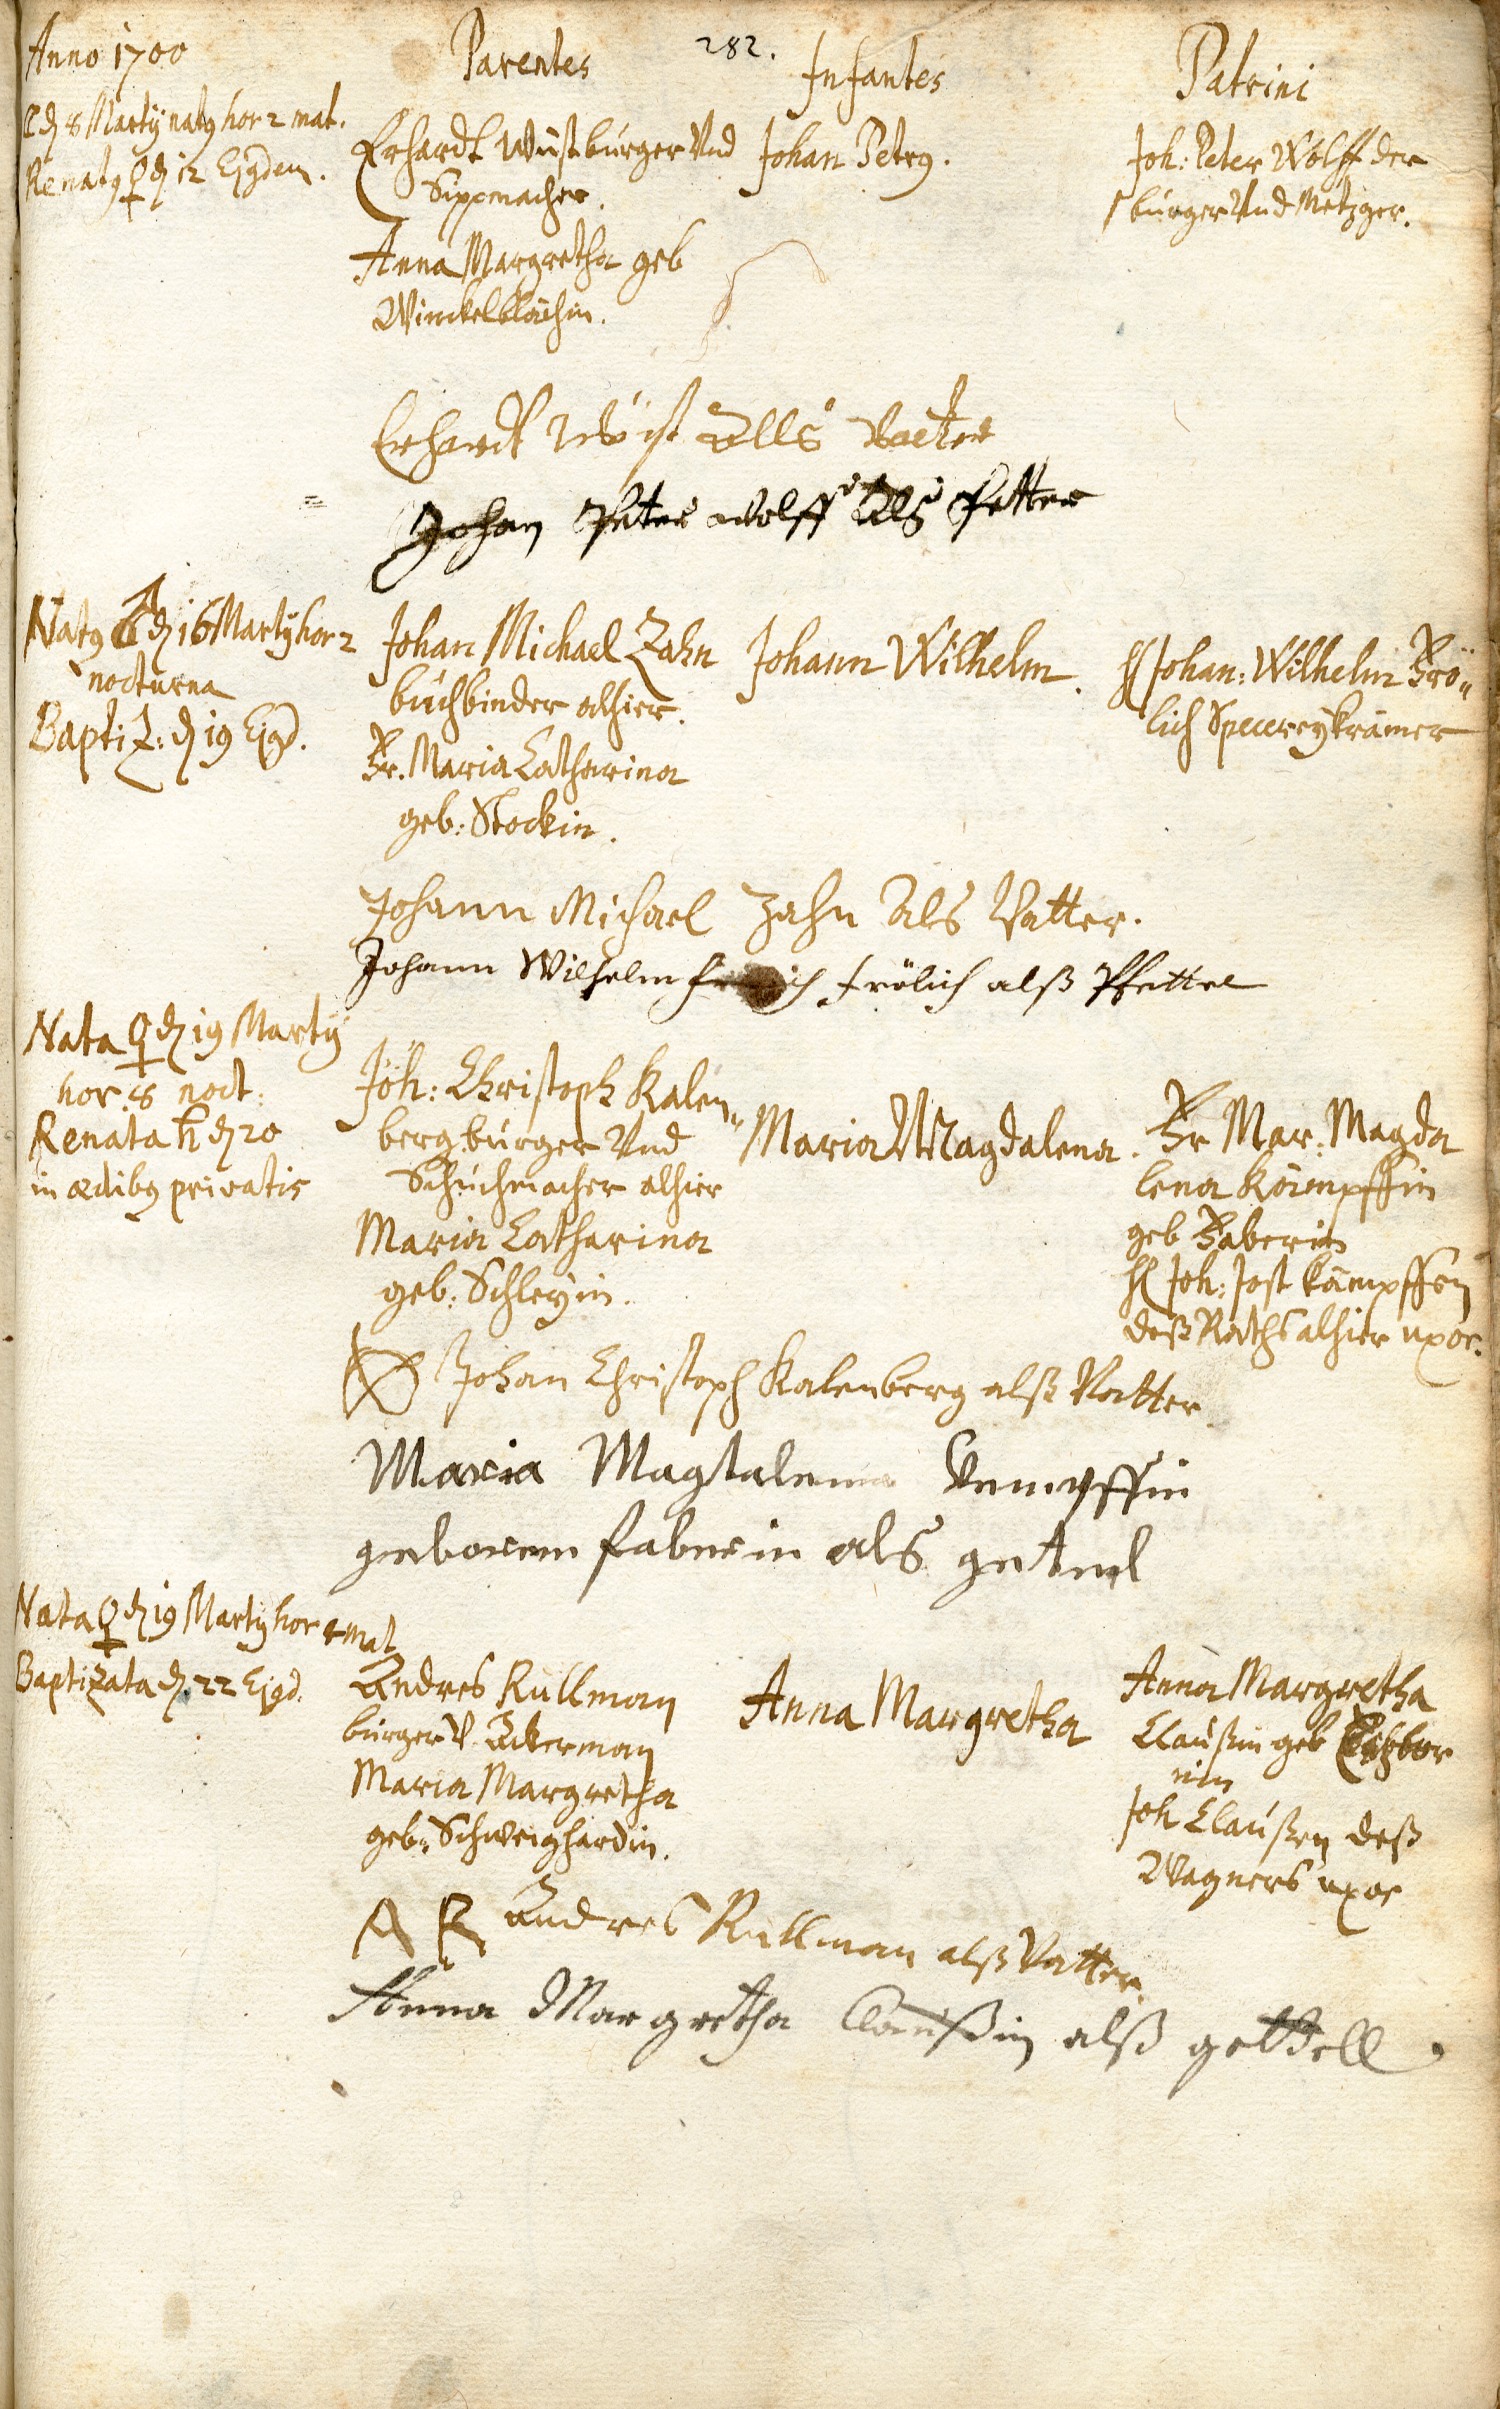 282.
Anno 1700
Parentes
Infantes
Patrini
☾ d 8 Martÿ natq hor 2 mat.
Renatq ♀ d 12 Ejgdem.
Erhardt Wüst bürger Vnd
Sippmacher.
Anna Margretha geb
Winckelblächin.
Johan Petrq.
Joh: Peter Wolff der
bürger Vnd Metzger.
Erhardt Wüst Alls Vatter
Johan Peter wolff Als Petter
Natq d 16 Martÿ hor 2
nocturna
Baptiz: d 19 Ejgd.
Johan Michael Zahn
büchbinder alhier.
Fr. Maria Catharina
geb: Stockin.
Johann Wilhelm.
H Johan: Wilhelm Frö„
lich Specereÿkrämer
Johann Michael Zahn Als Vatter.
Johann Wilhelm Frölich alß Pfetter
Nata ♀ d 19 Martÿ
hor. 8 noct:
Renata ♄ d 20
in ædibq privatis
Joh: Christoph Kalen„
berg bürger Vnd
Schüchmacher alhier
Maria Catharina
geb: Schleÿin.
Maria Magdalena.
Fr Mar: Magda
lena Kämpffin
geb Faberin
H Joh: Jost Kämpffen
deß Raths alhier uxor.
Johan Christoph Kalenberg alß Vatter
Maria Magtalena Kempffin
geborene faberin als getel
Nata ♀ d 19 Martÿ hor 4 mat
Baptizata d. 22 Ejgd.
Andres Rüllman
bürger V. Ackerman
Maria Margretha
geb: Schweighardin.
Anna Margretha
Anna Margretha
Claüßin geb
nin
Joh Claüßen deß
Wagners uxor
A R Andres Rüllman alß Vatter
Anna Margretha Claußin alß gettell